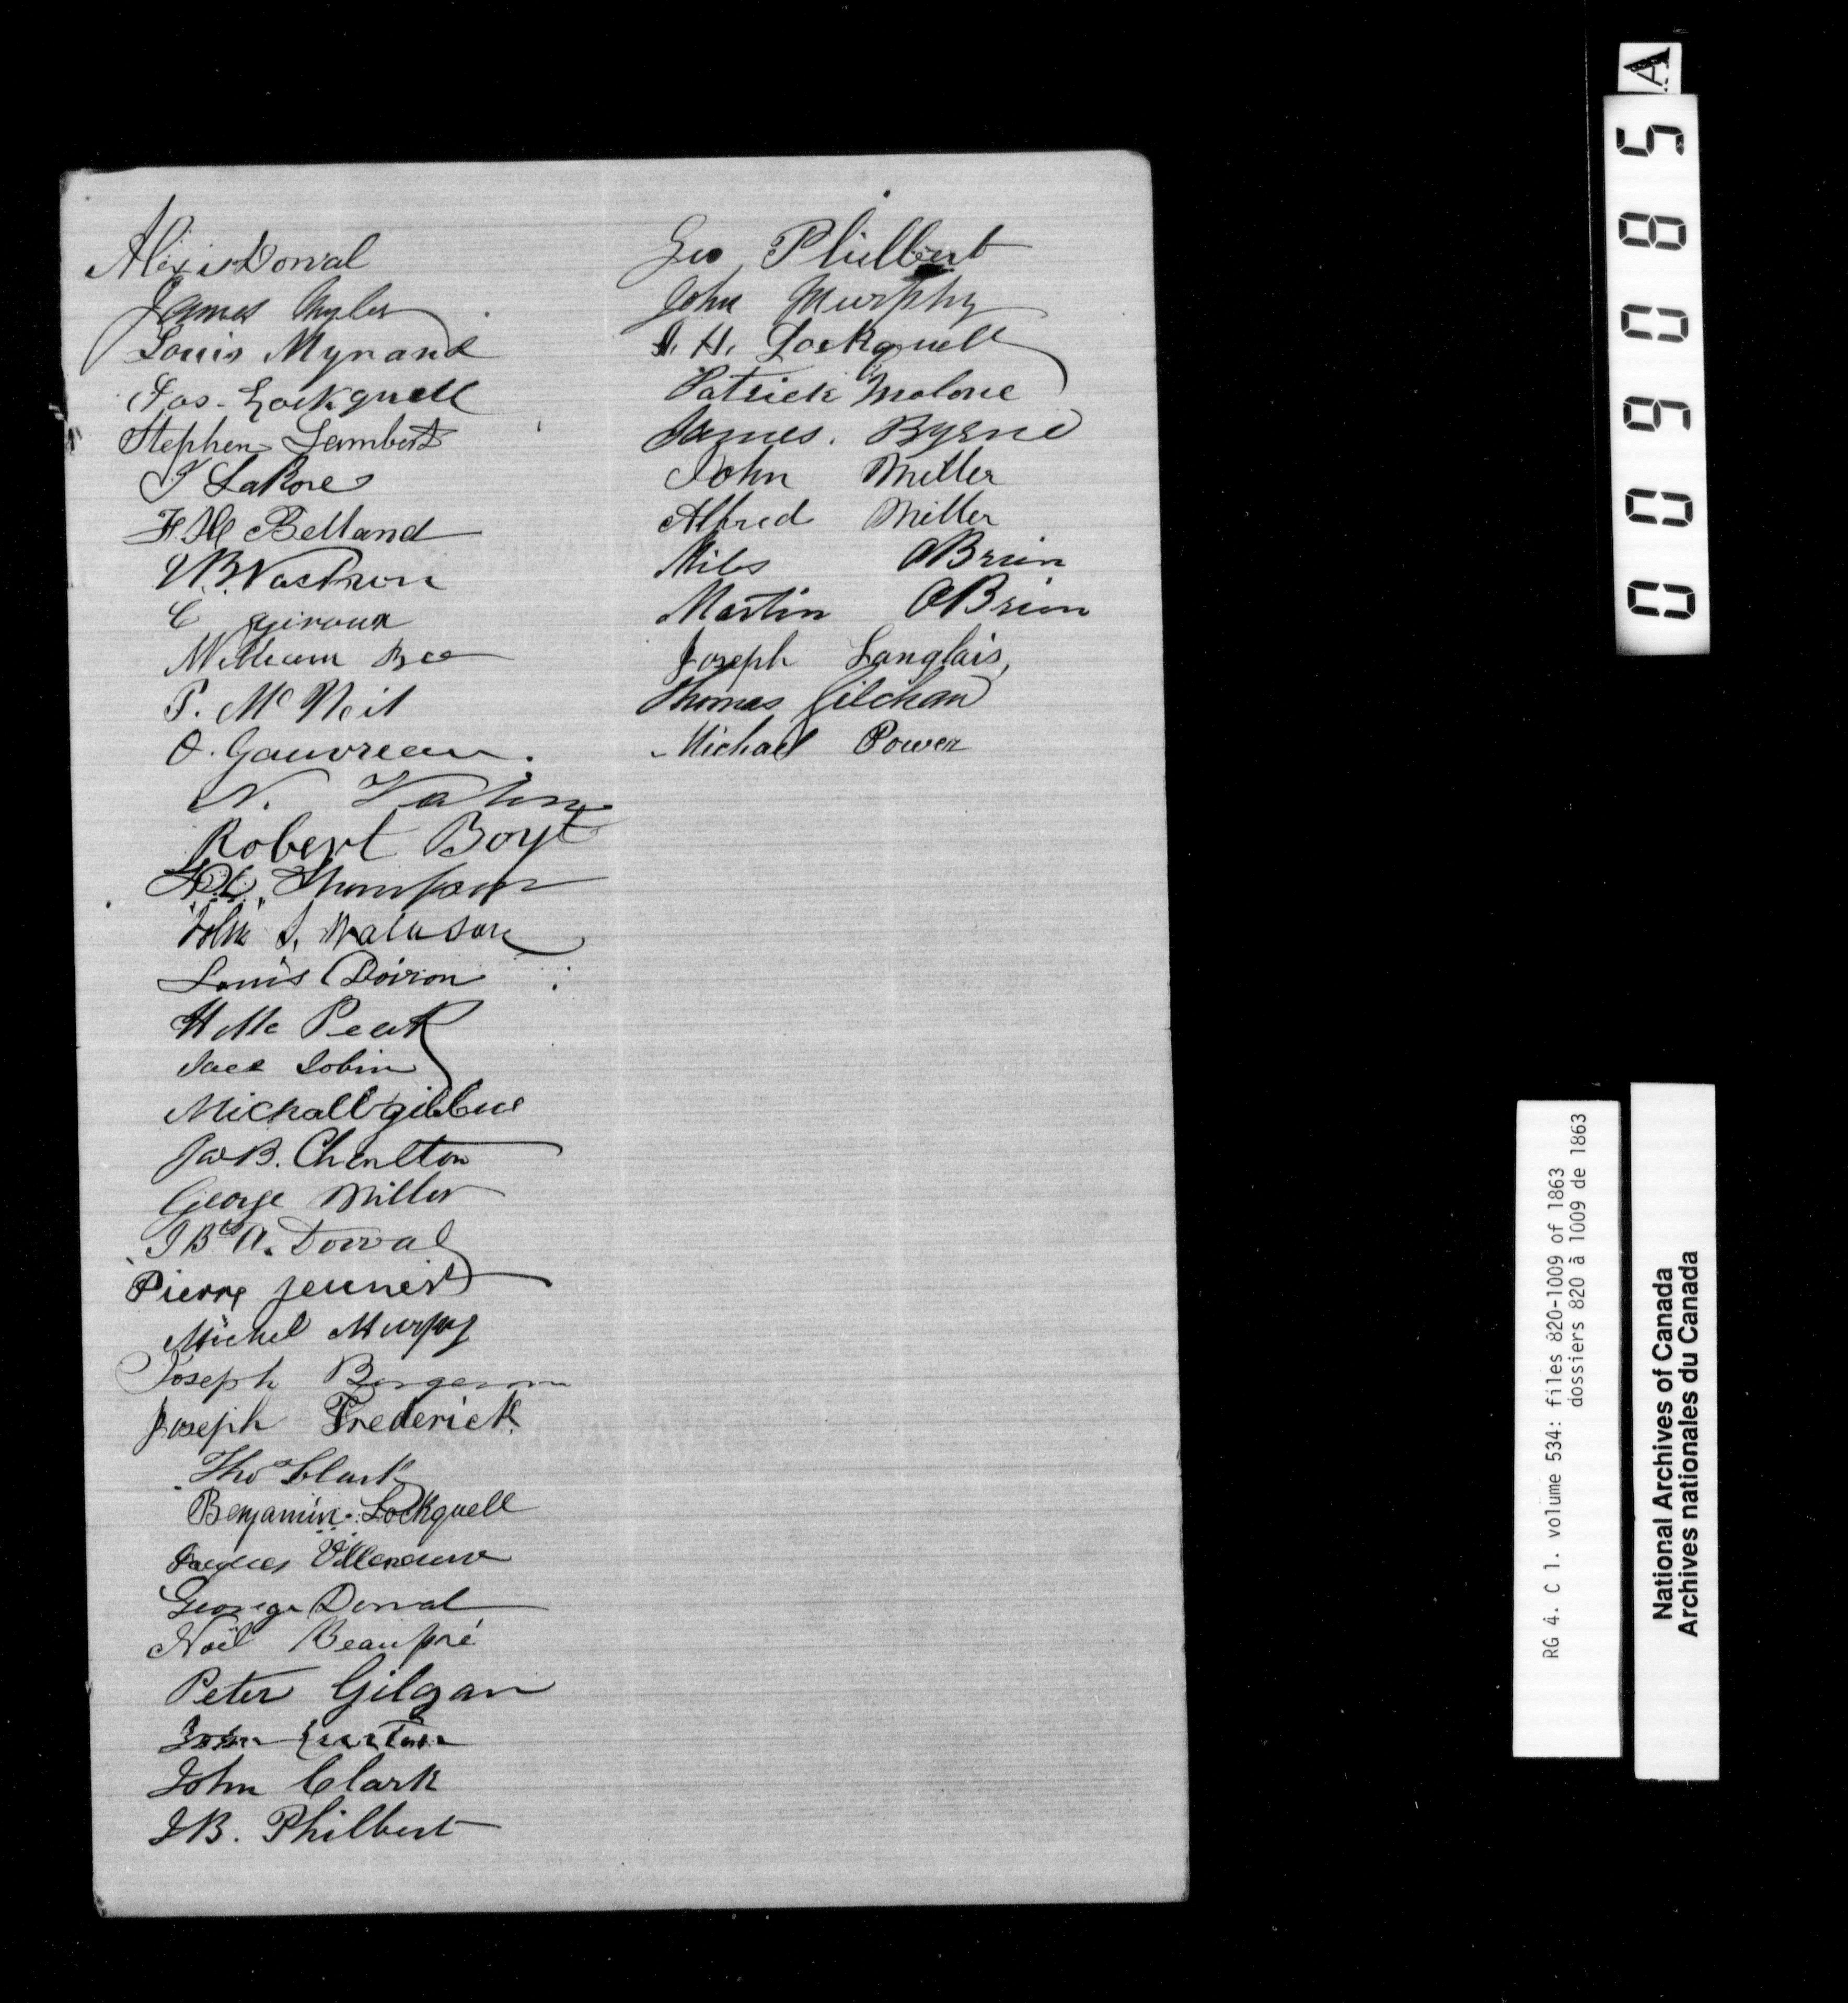 Alexis Dorval
James Myler
Louis Myrand
Jos. Lockquell
Stephen Lambert
J LaRose
F. H. Belland
C Giroux
William Bee
P. McNeil
O. Gauvreau.
N. Valin
Robert Boyt
Thompson
John S.
Louis Doiron
Wm Peak
Jacs Jobin
Michall gibbus
Jas B. Charlton
George Miller
J Bte A. Dorval
Pierre
Michel Murphy
Joseph Bergeron
Joseph Frederick
Thos Clark
Benjamin Lockquell
Jacques Villeneuve
George Dorval
Noël Beaupré
Peter Gilgan
John
John Clark
J B. Philbert
Geo Philbert
John Murphy
J. H. Lockquell
Patrick Malone
James. Byrne
John Miller
Alfred Miller
Miles OBrien
Martin OBrien
Joseph Langlais,
Thomas Gilchan
Michael Power
009085
A
RG 4. C 1. volume 534: files 820-1009 of 1863
dossiers 820 à 1009 de 1863
National Archives of Canada
Archives nationales du Canada